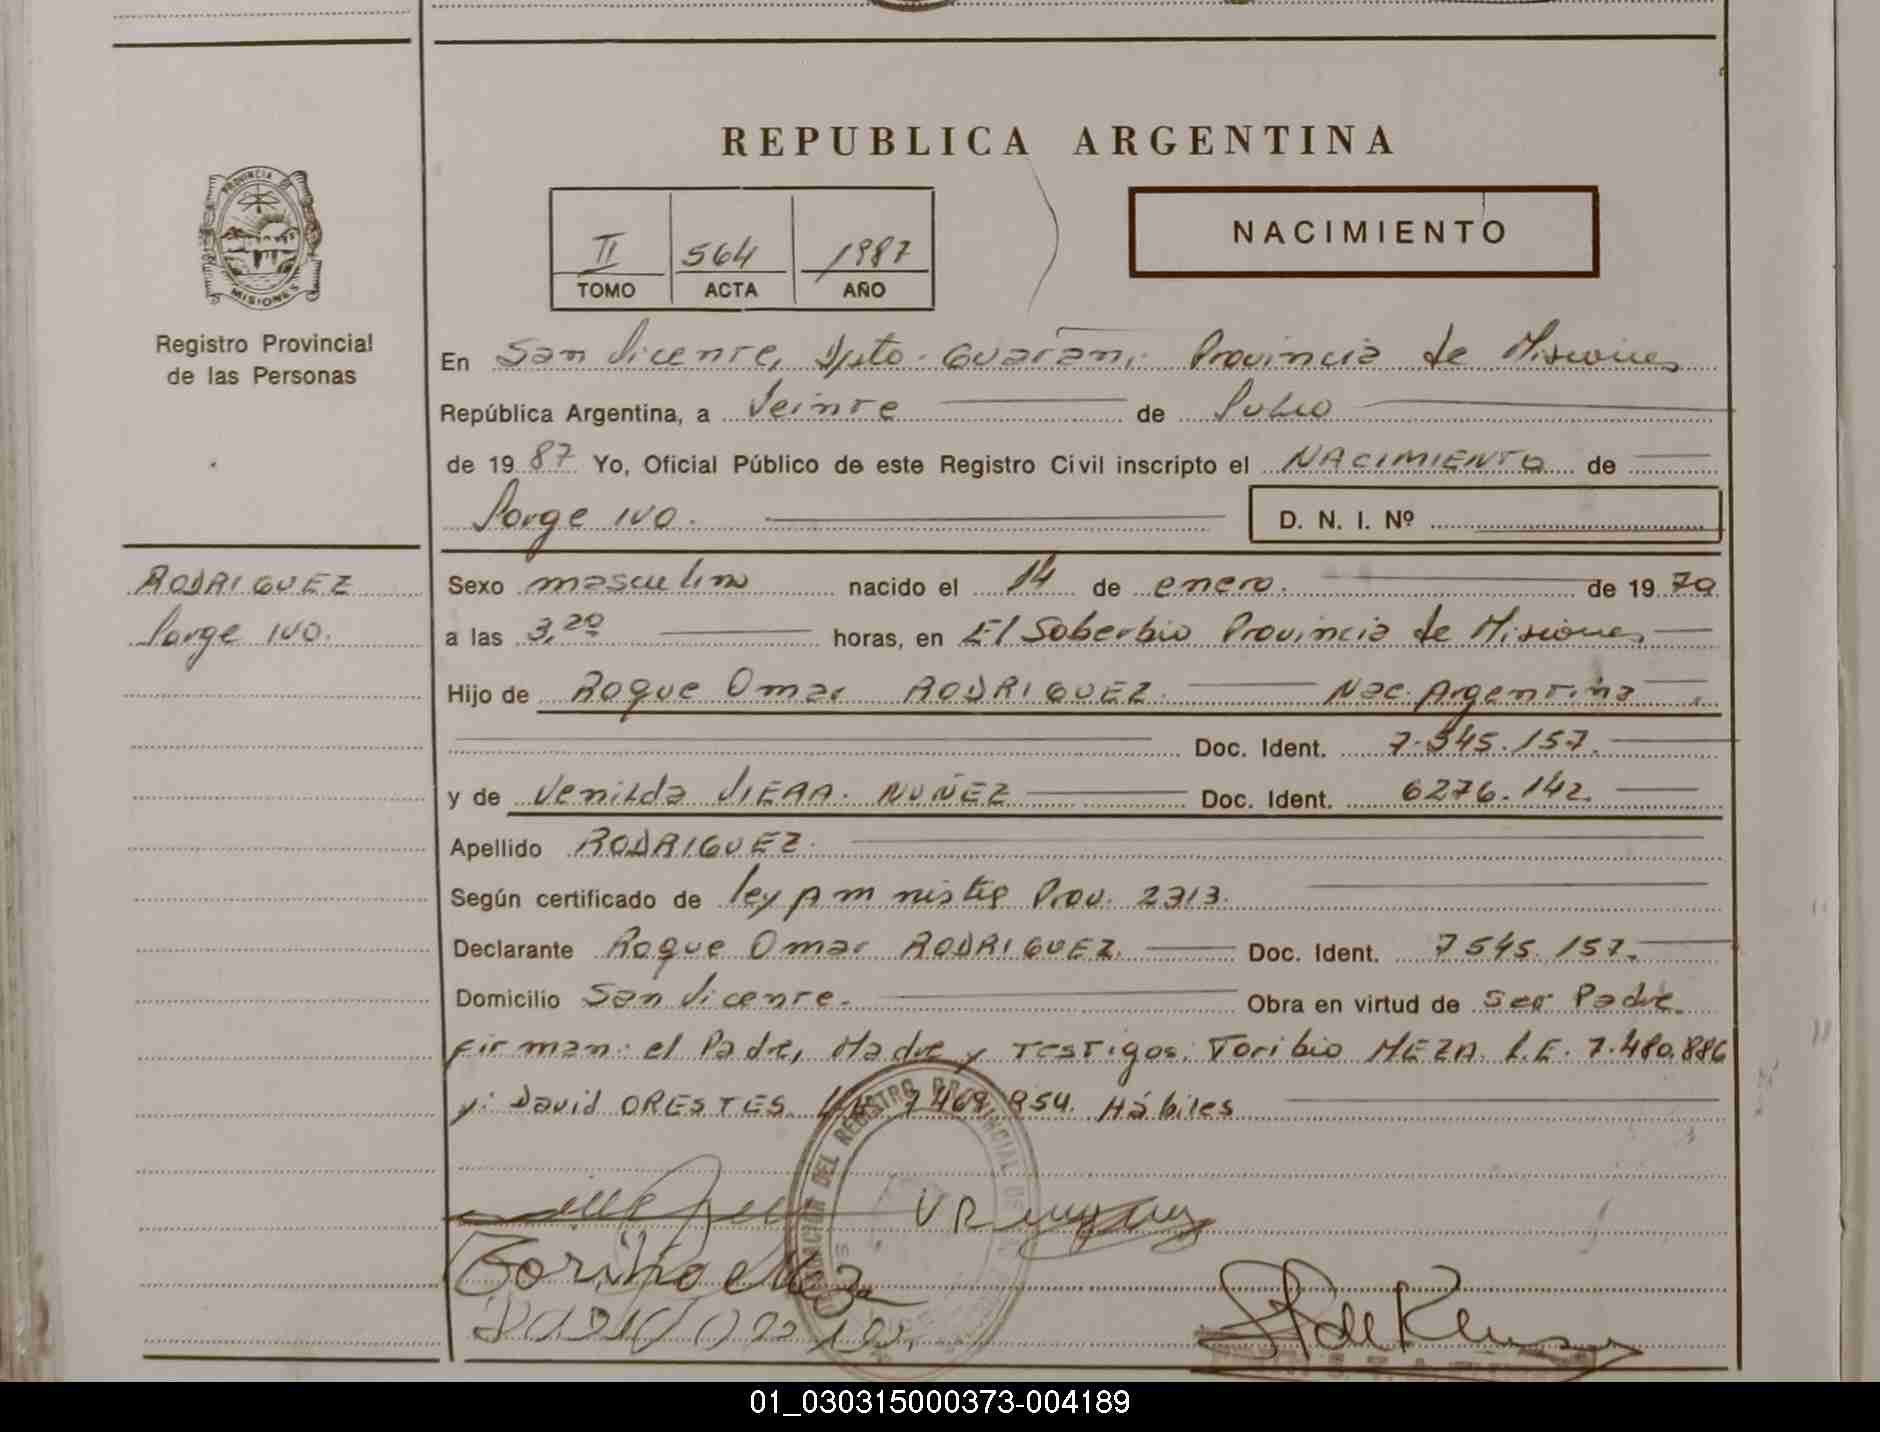 REPUBLICA ARGENTINA
PROVINCIA DE
MISIONES
Registro Provincial
de las Personas
II 564 1987
TOMO ACTA AÑO
NACIMIENTO
En San Vicente, Dpto. Guaraní Provincia de Misiones
República Argentina, a Veinte de Julio
de 1987 Yo, Oficial Público de este Registro Civil inscripto el NACIMIENTO de
Jorge IVO.
D. N. I. Nº
RODRIGUEZ
Jorge IVO.
Sexo masculino nacido el 14 de enero. de 1970
a las 3,20 horas, en El Soberbio Provincia de Misiones
Hijo de Roque Omar RODRIGUEZ. Nac. Argentina
Doc. Ident. 7.545.157.
y de Venilda VIERA. NUÑEZ Doc. Ident. 6276.142.
Apellido RODRIGUEZ.
Según certificado de ley Amnistia Prov. 2313.
Declarante Roque Omar RODRIGUEZ. Doc. Ident. 7545.157.
Domicilio San Vicente. Obra en virtud de ser Padre.
firman: el Padre, Madre y Testigos: Toribio MEZA L.E. 7.480.886
y: David ORESTES 7469.854. Hábiles
DEL REGISTRO PROVINCIAL
Toribio Meza
01_030315000373-004189